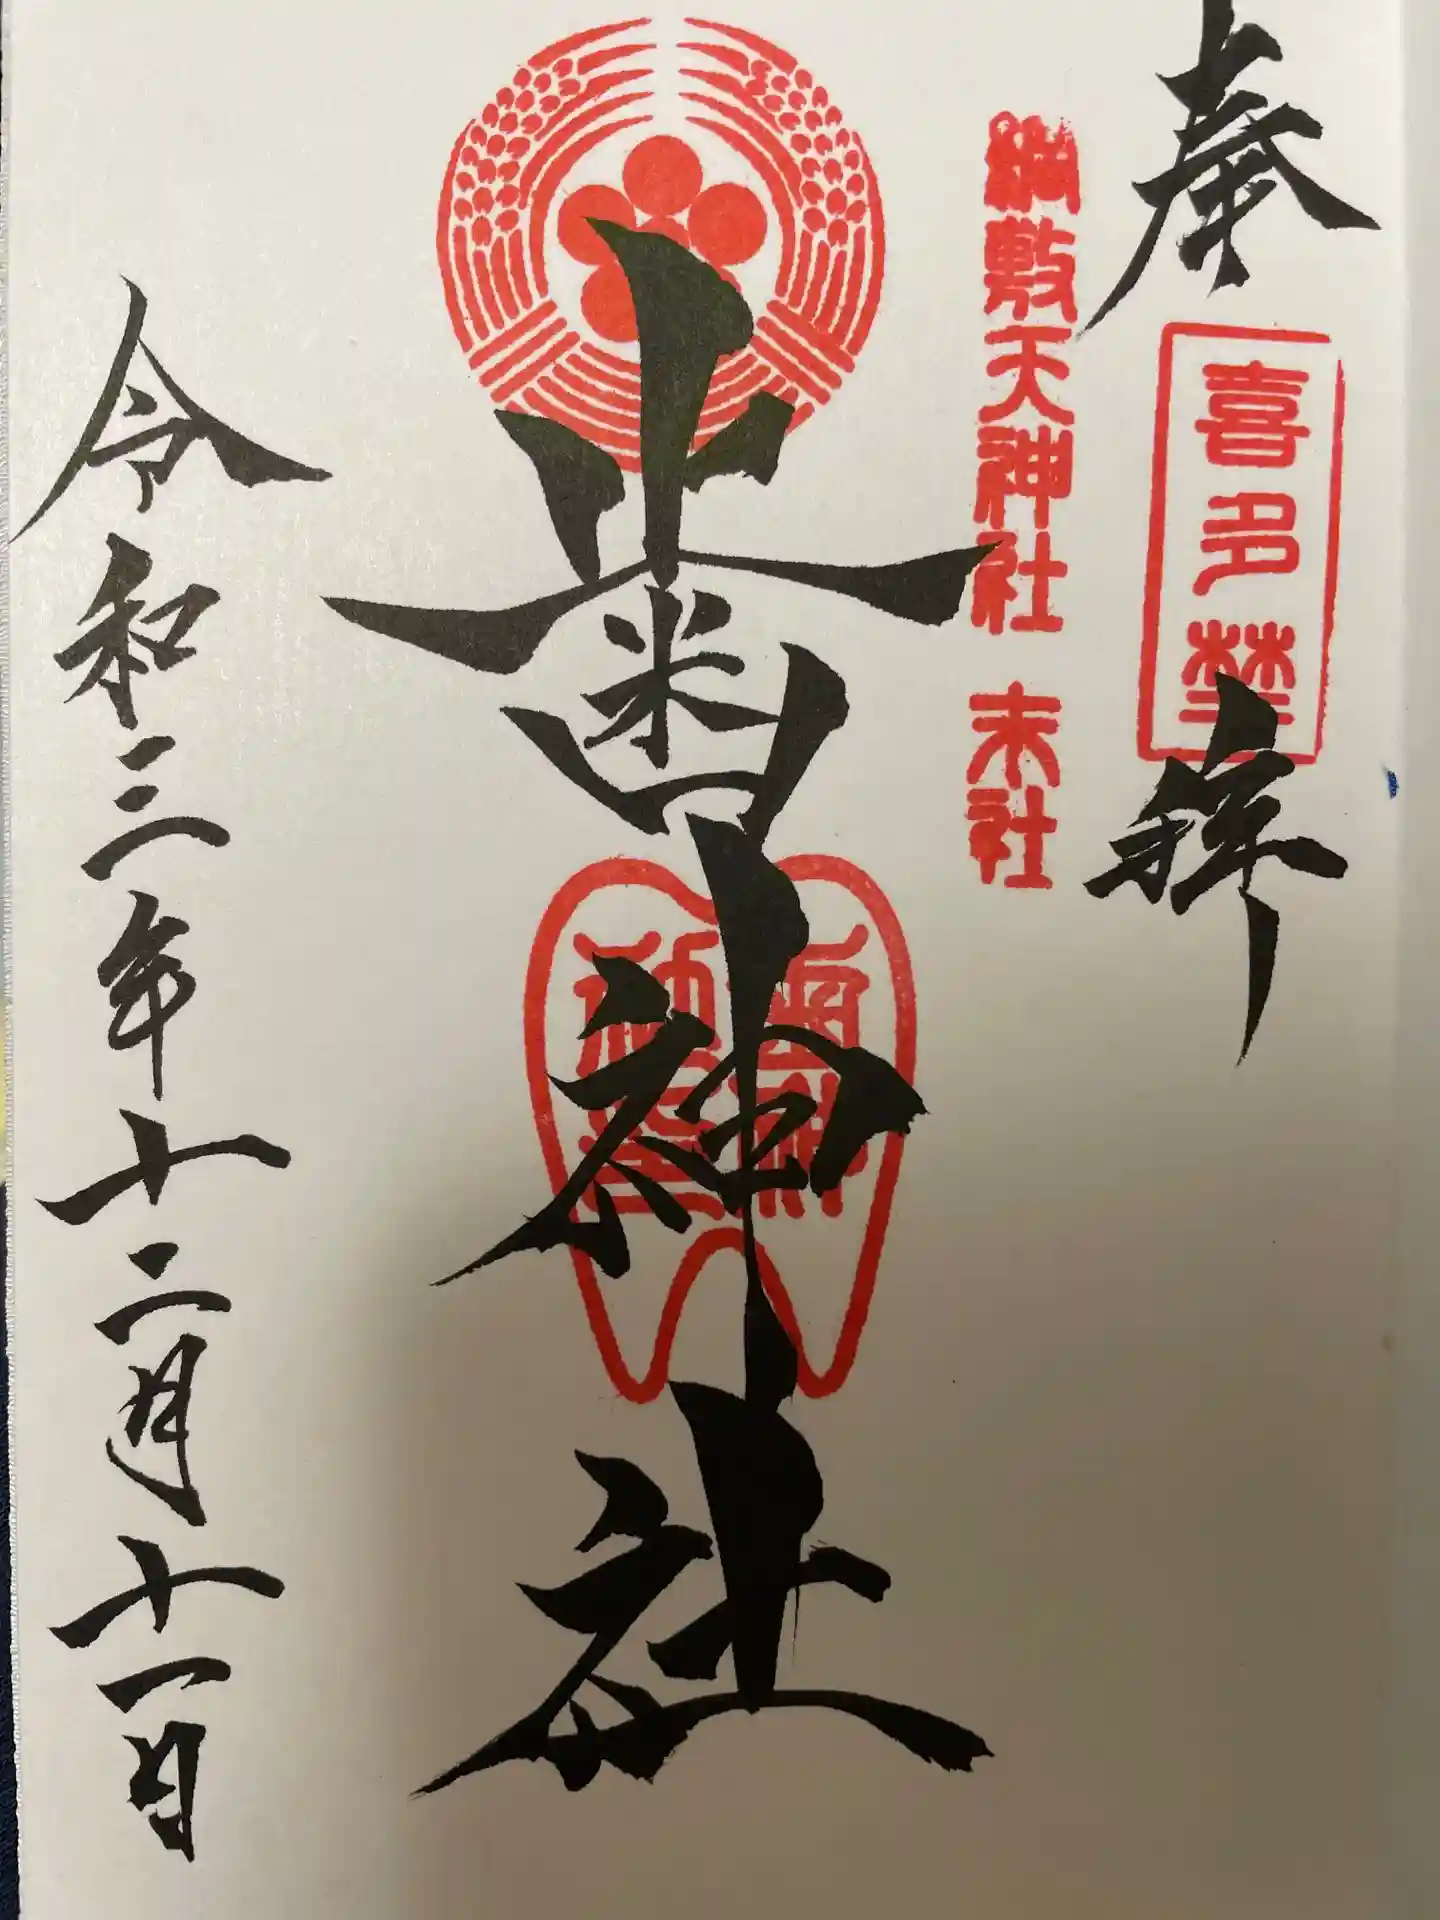 奉拝
喜多埜
綱敷天神社 末社
歯神社
歯神社璽
令和三年十二月十一日